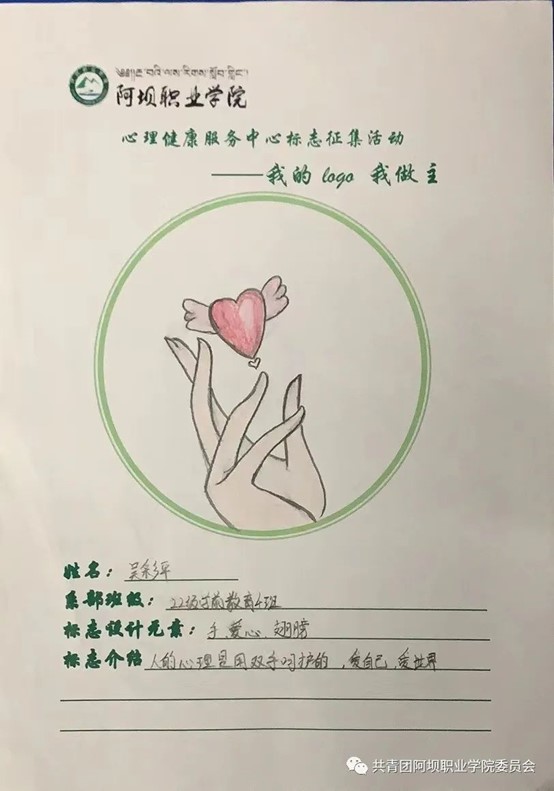 阿坝职业学院
心理健康服务中心标志征集活动
——我的logo 我做主
姓名：吴彩平
系部班级：22级学前教育4班
标志设计元素：手 爱心 翅膀
标志介绍 人的心理是用双手呵护的，爱自己，爱世界
共青团阿坝职业学院委员会